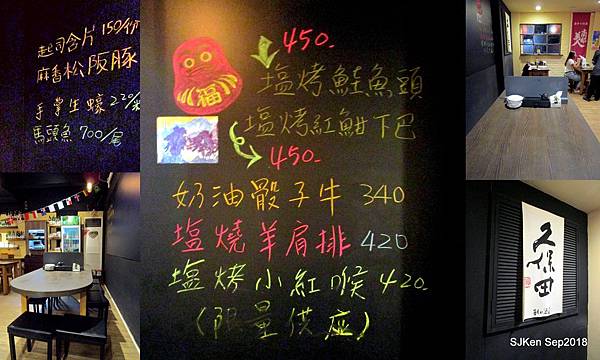 起司合片 150/份
麻香松阪豚
手掌生蠔 220/
馬頭魚 700/尾
福
450.
塩烤鮭魚頭
塩烤紅魽下巴
450.
奶油骰子牛 340
塩燒羊肩排 420
塩烤小紅喉 420.
(限量供应)
久保田
SJKen Sep2018